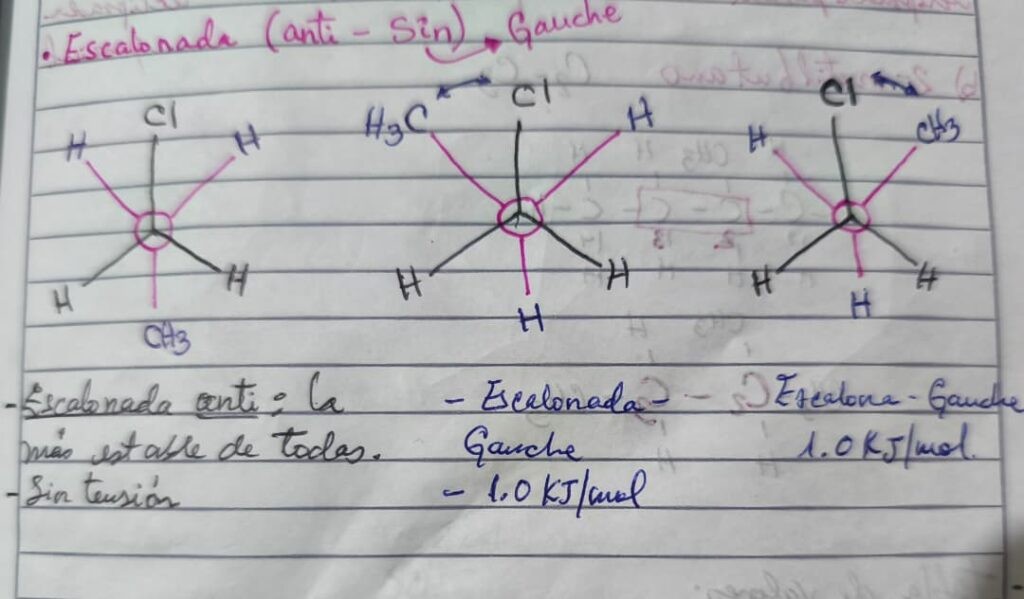 • Escalonada (anti - Sin) Gauche
Cl
H H
H H
CH3
H3C Cl H
H H
H
Cl
H CH3
H H
H
- Escalonada anti : la
más estable de todas.
- Sin tensión
- Escalonada -
Gauche
- 1.0 KJ/mol
Escalona - Gauche
1.0 KJ/mol.